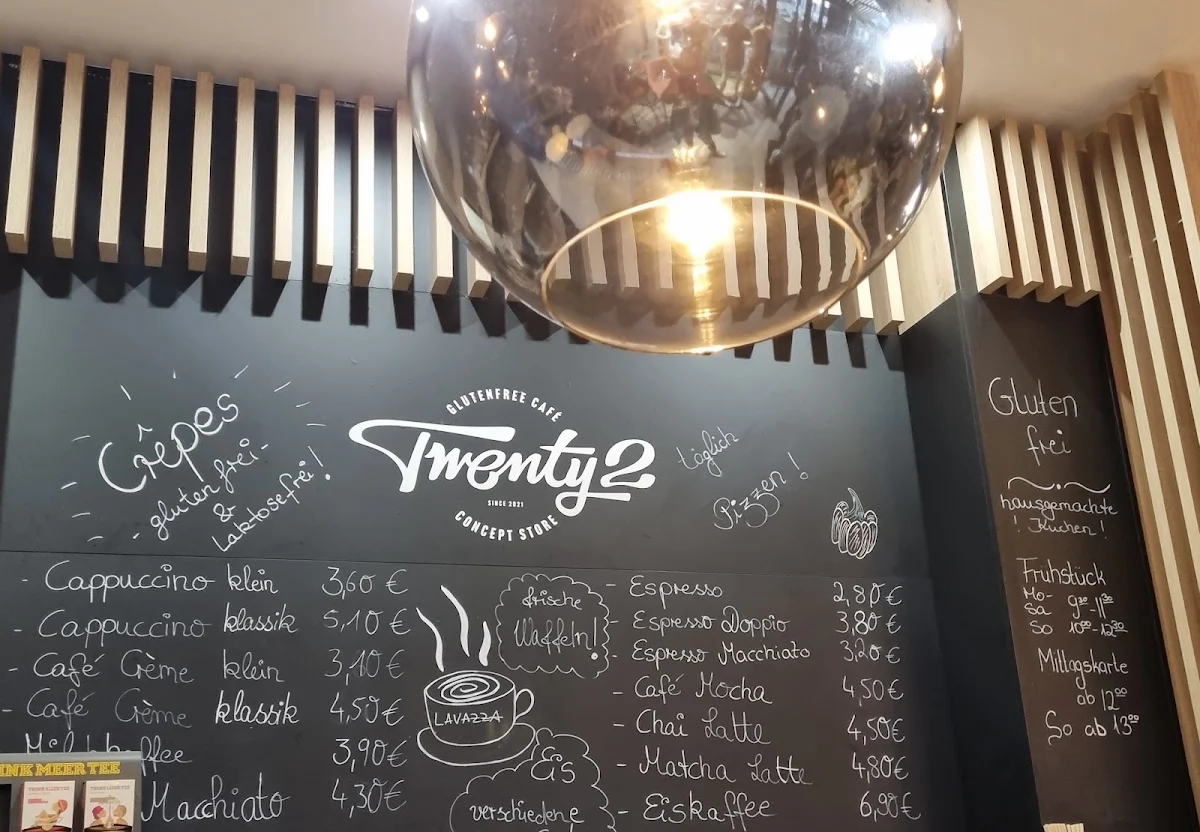 Crêpes
gluten frei-
&
Laktosefrei!
GLUTENFREE CAFÉ
Twenty2
SINCE 2021
CONCEPT STORE
täglich
Pizzen!
- Cappuccino klein 3,60 €
- Cappuccino klassik 5,10 €
- Café Crème klein 3,10 €
- Café Crème klassik 4,50 €
3,90 €
Macchiato 4,30 €
frische
Waffeln!
LAVAZZA
Eis
verschiedene
- Espresso 2,80 €
- Espresso Doppio 3,80 €
- Espresso Macchiato 3,20 €
- Café Mocha 4,50 €
- Chai Latte 4,50 €
- Matcha Latte 4,80 €
- Eiskaffee 6,90 €
Gluten
frei
hausgemachte
! Kuchen !
Frühstück
Mo-
Sa 9³⁰-11³⁰
So 10⁰⁰-12³⁰
Mittagskarte
ab 12⁰⁰
So ab 13⁰⁰
INK MEER TEE